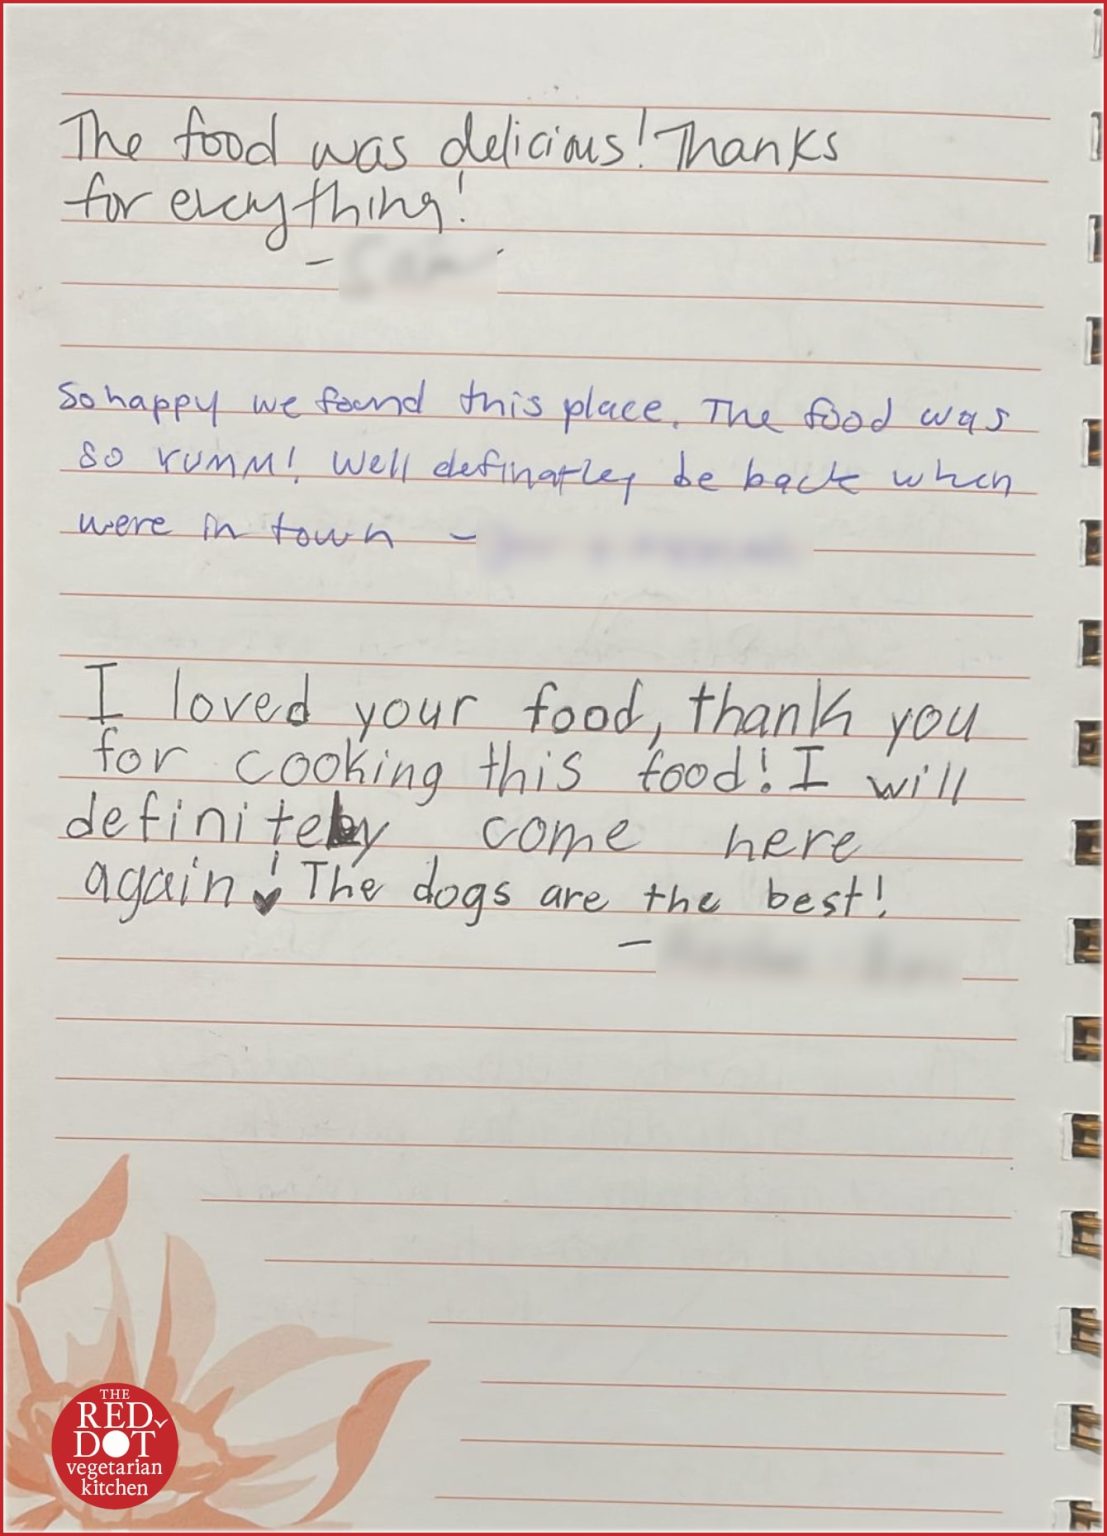 The food was delicious! Thanks
for everything!
-
So happy we found this place. The food was
so yumm! Well definatley be back when
were in town -
I loved your food, thank you
for cooking this food! I will
definitely come here
again! The dogs are the best!
-
THE
RED
DOT
vegetarian
kitchen